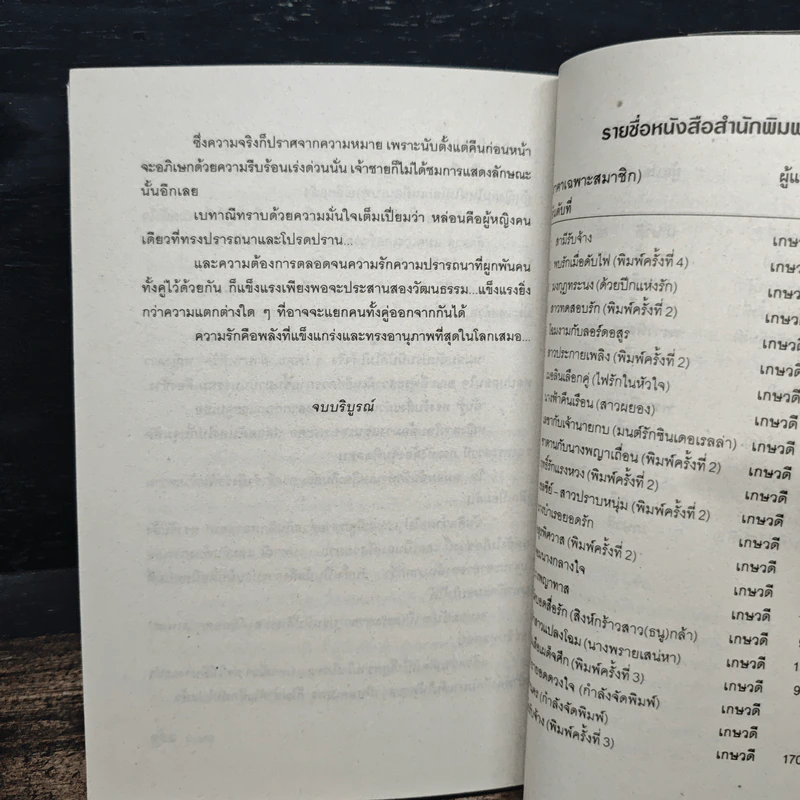 ซึ่งความจริงก็ปราศจากความหมาย เพราะนับตั้งแต่คืนก่อนหน้า
จะอภิเษกด้วยความรีบร้อนเร่งด่วนนั่น เจ้าชายก็ไม่ได้ชมการแสดงลักษณะ
นั้นอีกเลย
เบทาณีทราบด้วยความมั่นใจเต็มเปี่ยมว่า หล่อนคือผู้หญิงคน
เดียวที่ทรงปรารถนาและโปรดปราน...
และความต้องการตลอดจนความรักความปรารถนาที่ผูกพันคน
ทั้งคู่ไว้ด้วยกัน ก็แข็งแรงเพียงพอจะประสานสองวัฒนธรรม...แข็งแรงยิ่ง
กว่าความแตกต่างใด ๆ ที่อาจจะแยกคนทั้งคู่ออกจากกันได้
ความรักคือพลังที่แข็งแกร่งและทรงอานุภาพที่สุดในโลกเสมอ...
จบบริบูรณ์
รายชื่อหนังสือสำนักพิมพ์
เฉพาะสมาชิก)
สามีรับจ้าง เกษวดี
พบรักเมื่อดับไฟ (พิมพ์ครั้งที่ 4) เกษวดี
มงกุฎทระนง (ด้วยปีกแห่งรัก) เกษวดี
สาวทดสอบรัก (พิมพ์ครั้งที่ 2) เกษวดี
โฉมงามกับลอร์ดอสูร เกษวดี
สาวประกายเพลิง (พิมพ์ครั้งที่ 2) เกษวดี
เลือกคู่ (ไฟรักในหัวใจ) เกษวดี
(สาวผยอง) เกษวดี
กับเจ้านายกบ (มนต์รักซินเดอเรลล่า) เกษวดี
กับนางพญาเถื่อน (พิมพ์ครั้งที่ 2) เกษวดี
รักแรงหวง (พิมพ์ครั้งที่ 2) เกษวดี
สาวปราบหนุ่ม (พิมพ์ครั้งที่ 2) เกษวดี
ยอดรัก เกษวดี
พิศวาส (พิมพ์ครั้งที่ 2) เกษวดี
นางกลางใจ เกษวดี
พญาทาส เกษวดี
สื่อรัก (สิงห์กร้าวสาว(ธนู)กล้า) เกษวดี
สาวแปลงโฉม (นางพรายเสน่หา) เกษวดี
เผด็จศึก (พิมพ์ครั้งที่ 3) เกษวดี
ยอดดวงใจ (กำลังจัดพิมพ์) เกษวดี
(กำลังจัดพิมพ์) เกษวดี
จ้าง (พิมพ์ครั้งที่ 3) เกษวดี 170